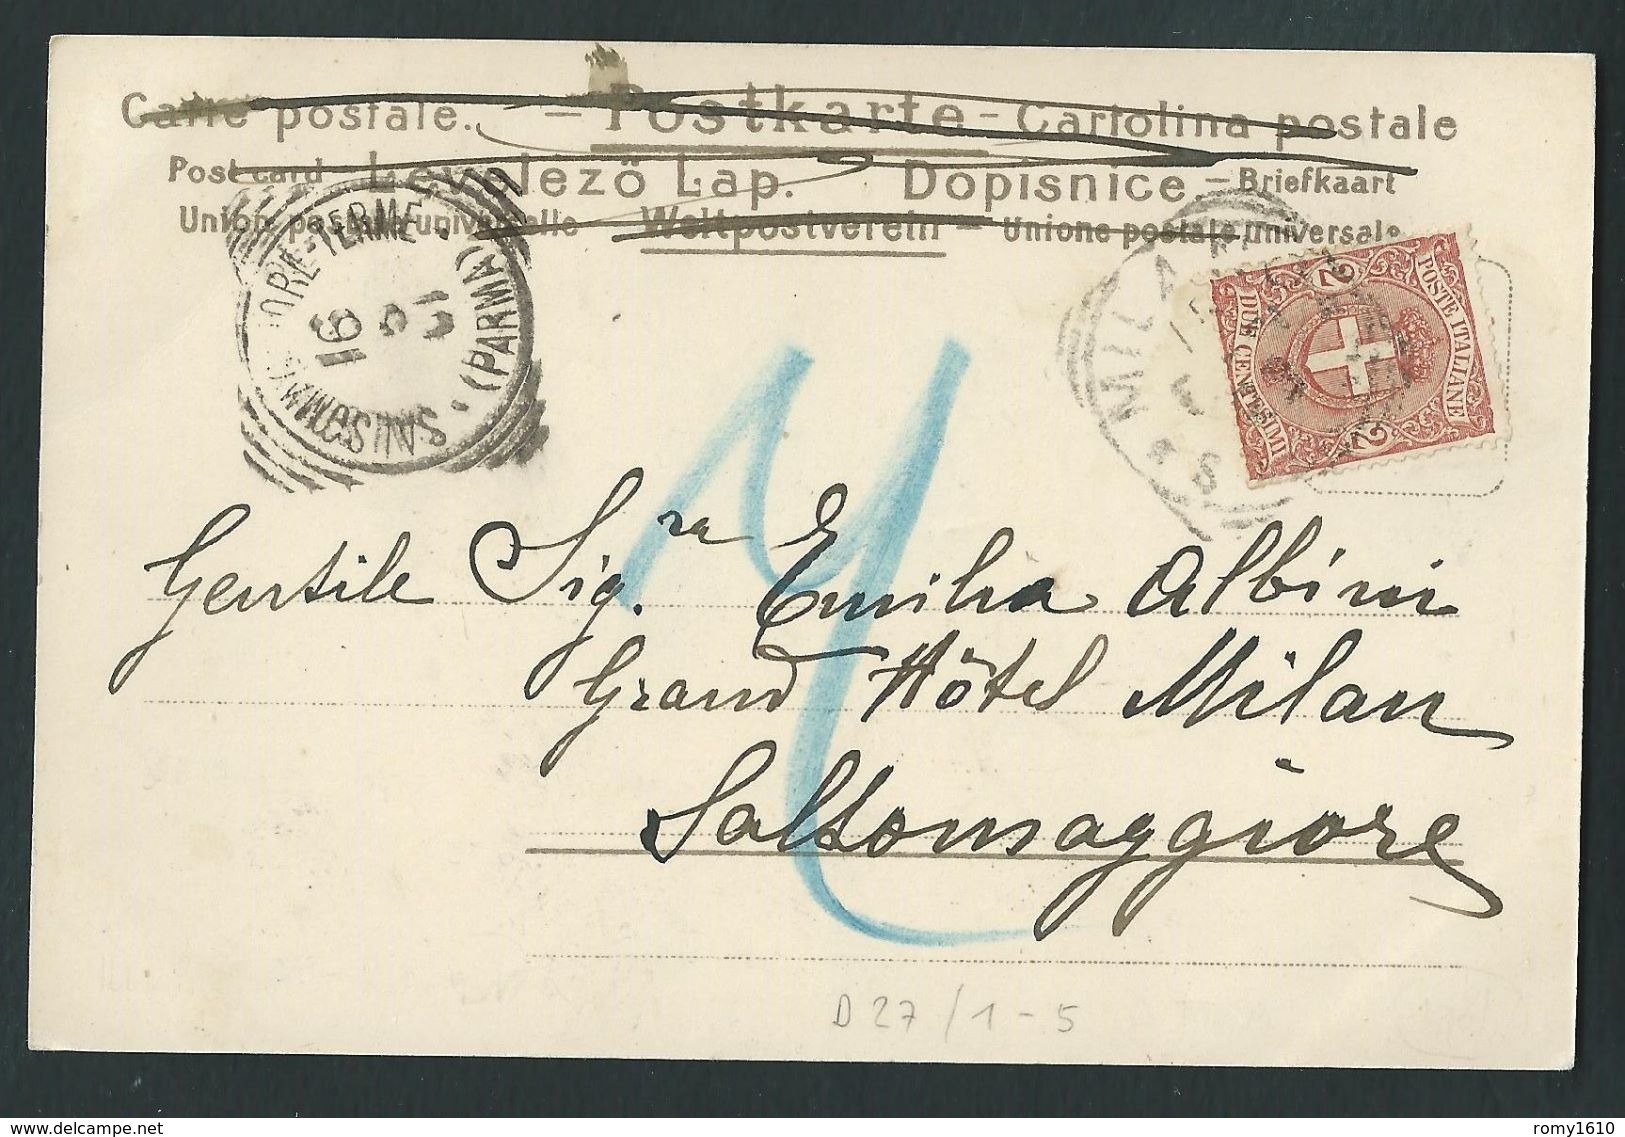 Carte postale. – Postkarte – Cartolina postale
Post card Levelező Lap. Dopisnice – Briefkaart
Union postale universelle – Weltpostverein – Unione postale universale
SALSOMAGGIORE-TERME
(PARMA)
16
MILANO
POSTE ITALIANE
2
2
DUE CENTESIMI
Gentile Sig.ra Emilia Albini
Grand Hôtel Milan
Salsomaggiore
D 27/1-5
delcampe.net
romy1610